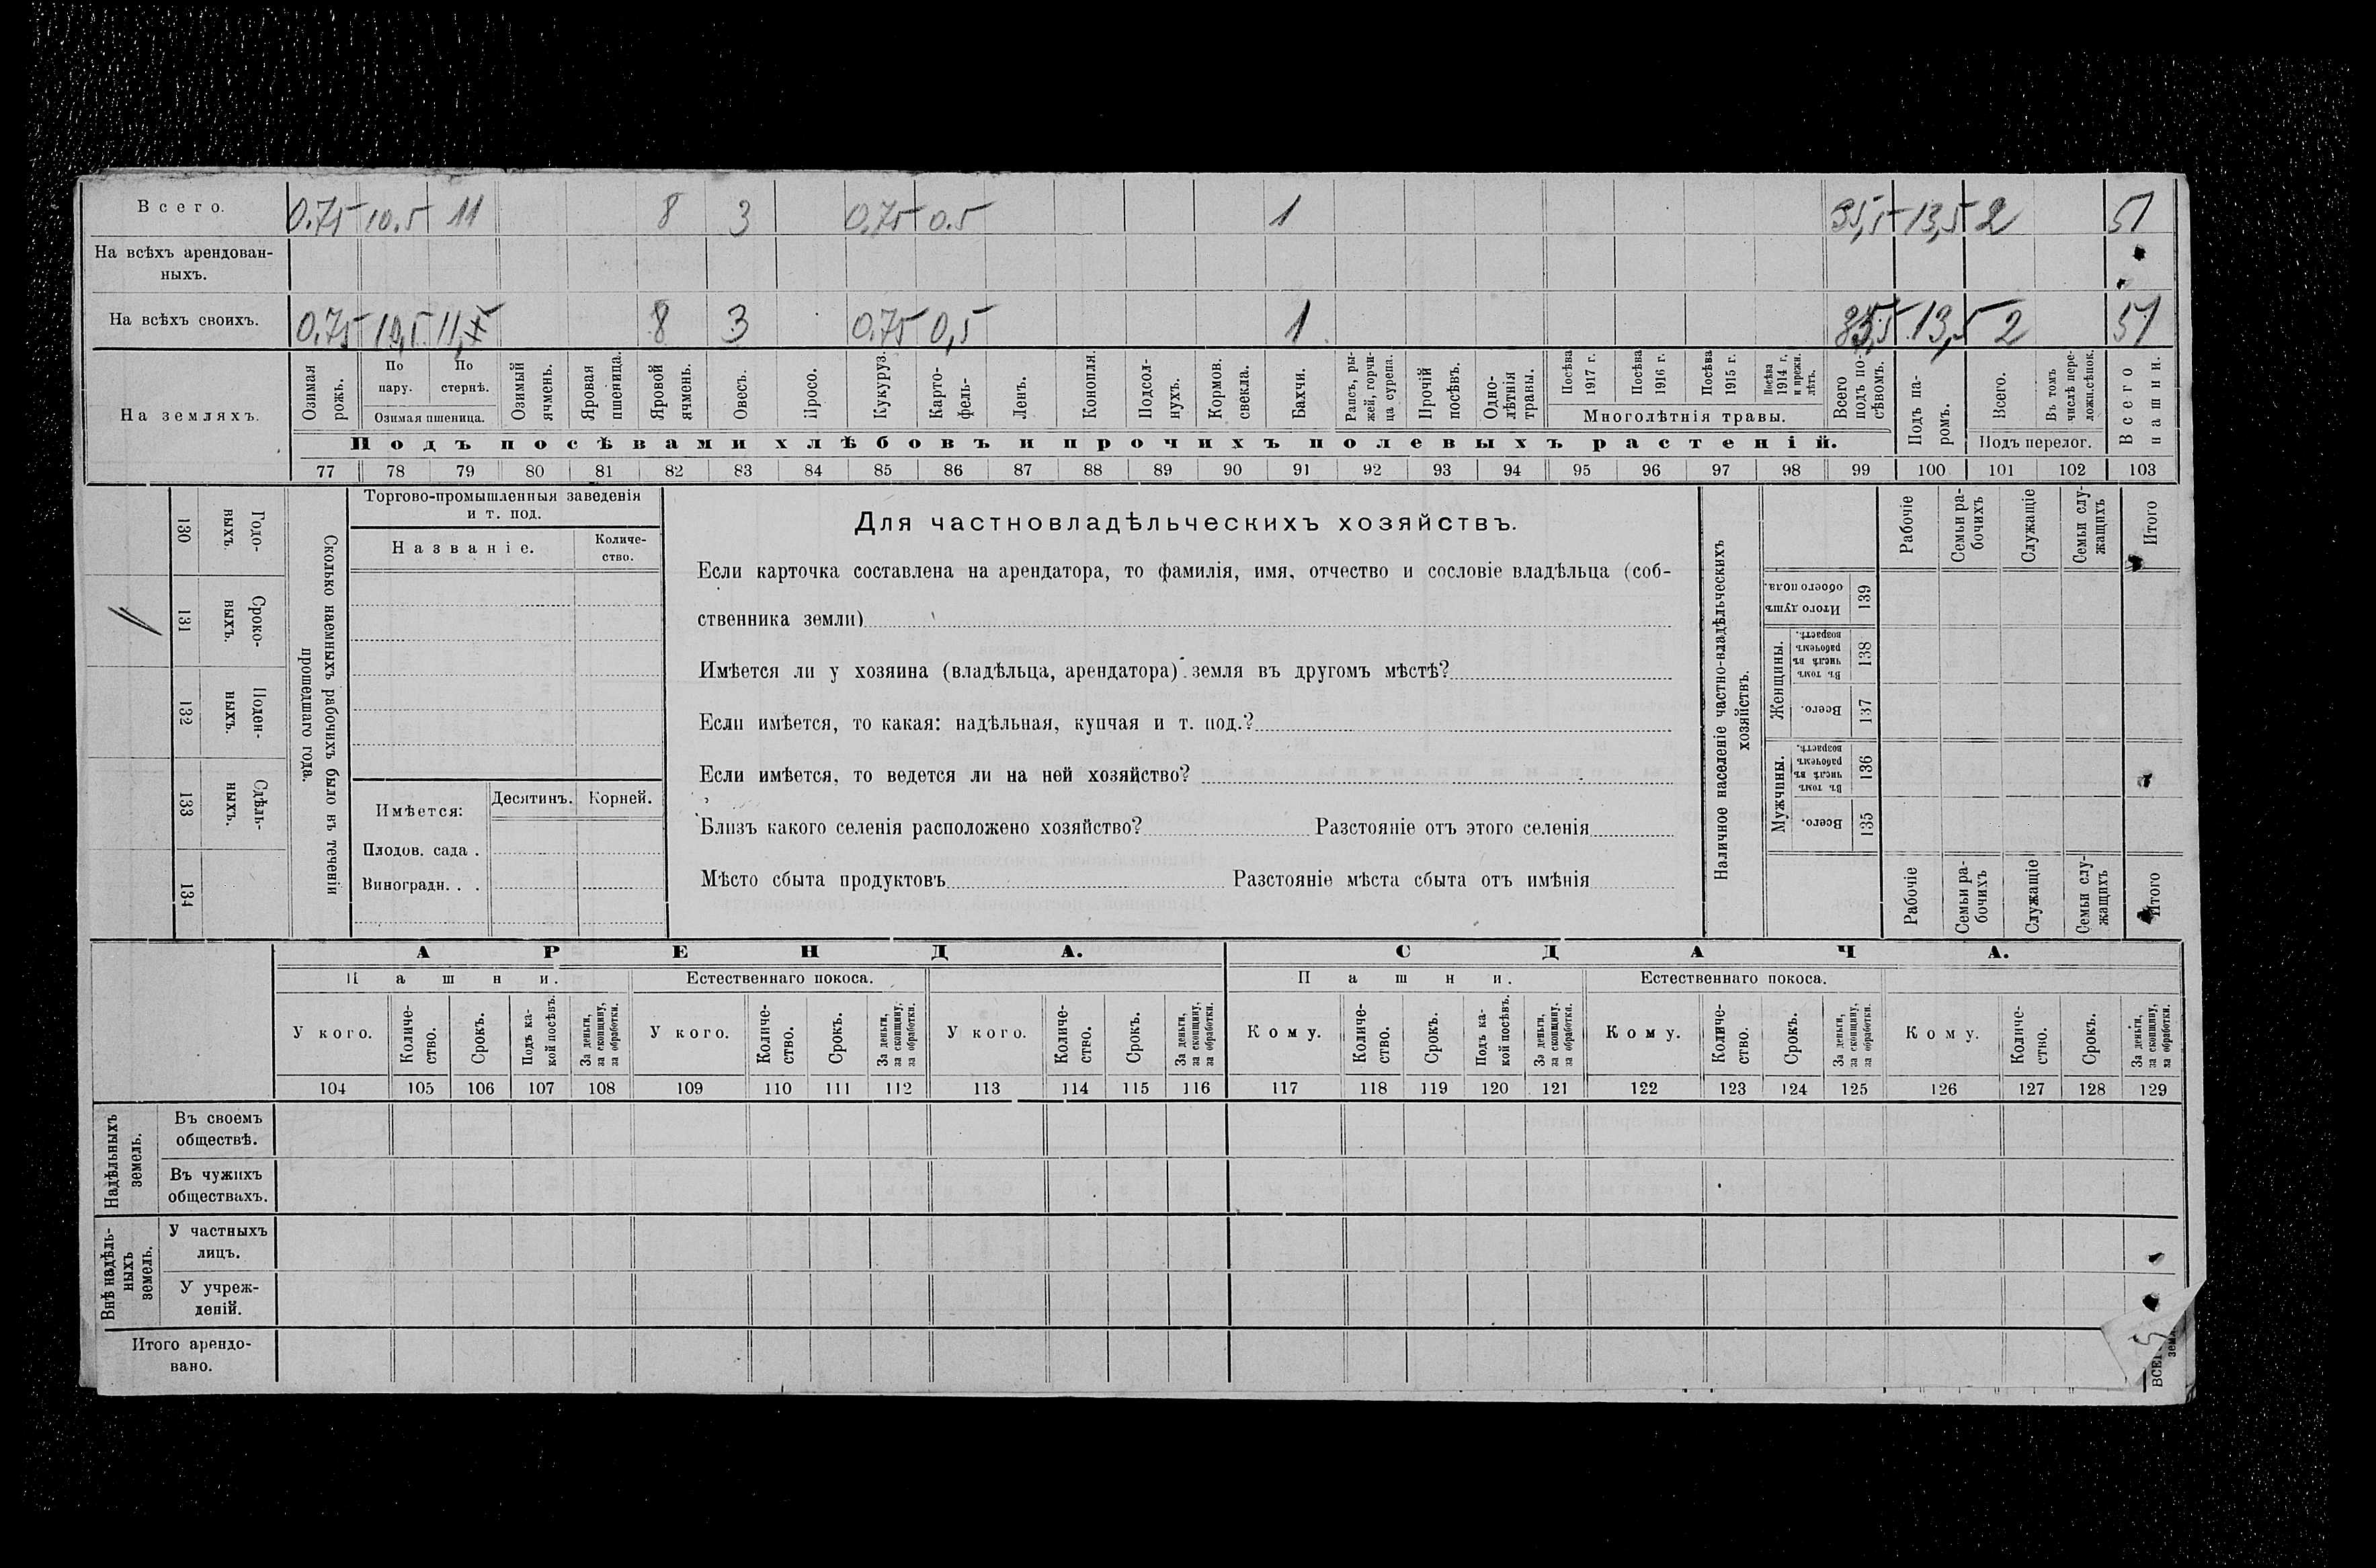 Всего. 0.75 10.5 11 8 3 0.75 0.5 1 35,5 13,5 2 51
На всѣхъ арендован-
ныхъ.
На всѣхъ своихъ. 0.75 10,5 11, 8 3 0.75 0,5 1 35,5 13,5 2 51
На земляхъ.
Озимая рожь.
По пару.
По стернѣ.
Озимая пшеница.
Озимый ячмень.
Яровая пшеница.
Яровой ячмень.
Овесъ.
Просо.
Кукуруз.
Карто-
фель-
Ленъ.
Конопля.
Подсол-
нухъ.
Кормов.
свекла.
Бахчи.
Рапсъ, ры-
жей, горчи-
ца сурепа.
Прочій
посѣвъ.
Одно-
лѣтнія
травы.
Посѣва
1917 г.
Посѣва
1916 г.
Посѣва
1915 г.
Посѣва
1914 г.
и прежн.
лѣтъ.
Многолѣтнія травы.
Всего
подъ по-
сѣвомъ.
Подъ па-
ромъ.
Всего.
Въ томъ
числѣ пере-
ложн.сѣнок.
Подъ перелог.
Всего
пашни.
Подъ посѣвами хлѣбовъ и прочихъ полевыхъ растеній.
77 78 79 80 81 82 83 84 85 86 87 88 89 90 91 92 93 94 95 96 97 98 99 100 101 102 103
Сколько наемныхъ рабочихъ было въ теченіи
прошедшаго года.
Годо-
ныхъ.
130
Сроко-
ныхъ.
131
Поден-
ныхъ.
132
Сдѣль-
ныхъ.
133
134
Торгово-промышленныя заведенія
и т. под.
Названіе.
Количе-
ство.
Имѣется:
Десятинъ. Корней.
Плодов. сада .
Виноградн. . .
Для частновладѣльческихъ хозяйствъ.
Если карточка составлена на арендатора, то фамилія, имя, отчество и сословіе владѣльца (соб-
ственника земли)
Имѣется ли у хозяина (владѣльца, арендатора) земля въ другомъ мѣстѣ?
Если имѣется, то какая: надѣльная, купчая и т. под.?
Если имѣется, то ведется ли на ней хозяйство?
Близъ какого селенія расположено хозяйство? Разстояніе отъ этого селенія
Мѣсто сбыта продуктовъ Разстояніе мѣста сбыта отъ имѣнія
Наличное населеніе частно-владѣльческихъ
хозяйствъ.
Рабочіе
Семьи ра-
бочихъ
Служащіе
Семьи слу-
жащихъ
Итого
Итого душъ
обоего пола.
139
Женщины.
Въ томъ
числѣ въ
рабочемъ
возрастѣ.
138
Всего.
137
Мужчины.
Въ томъ
числѣ въ
рабочемъ
возрастѣ.
136
Всего.
135
Рабочіе
Семьи ра-
бочихъ
Служащіе
Семьи слу-
жащихъ
Итого
АРЕНДА. СДАЧА.
Пашни. Естественнаго покоса. Пашни. Естественнаго покоса.
У кого.
Количе-
ство.
Срокъ.
Подъ ка-
кой посѣвъ.
За деньги,
за скопщину,
за обработки.
У кого.
Количе-
ство.
Срокъ.
За деньги,
за скопщину,
за обработки.
У кого.
Количе-
ство.
Срокъ.
За деньги,
за скопщину,
за обработки.
Кому.
Количе-
ство.
Срокъ.
Подъ ка-
кой посѣвъ.
За деньги,
за скопщину,
за обработки.
Кому.
Количе-
ство.
Срокъ.
За деньги,
за скопщину,
за обработки.
Кому.
Количе-
ство.
Срокъ.
За деньги,
за скопщину,
за обработки.
104 105 106 107 108 109 110 111 112 113 114 115 116 117 118 119 120 121 122 123 124 125 126 127 128 129
Надѣльныхъ
земель.
Въ своемъ
обществѣ.
Въ чужихъ
обществахъ.
Внѣ надѣль-
ныхъ
земель.
У частныхъ
лицъ.
У учреж-
деній.
Итого арендо-
вано.